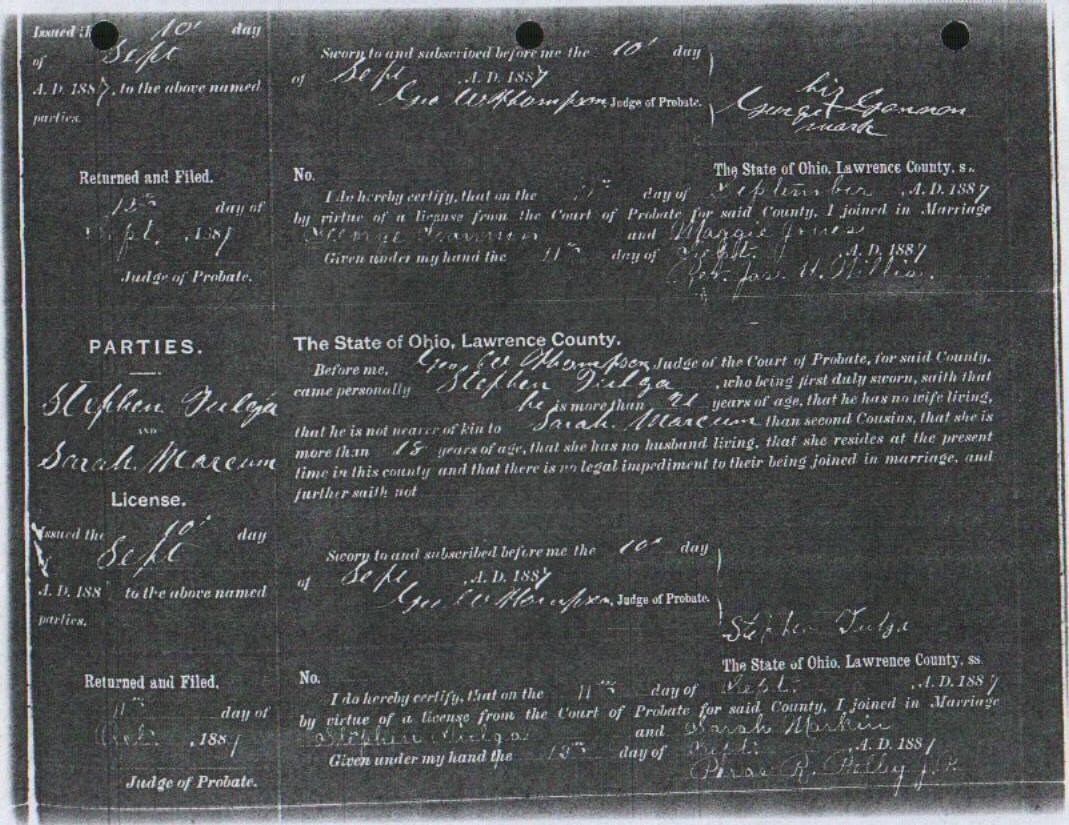 Issued the 10' day
of Sept
A. D. 1887, to the above named
parties.
Sworn to and subscribed before me the 10' day
of Sept A. D. 1887
Geo W Thompson, Judge of Probate.
his
George Gannon
mark
Returned and Filed.
13th day of
Sept. , 1887
Judge of Probate.
The State of Ohio, Lawrence County, s.
No.
I do hereby certify, that on the day of September , A. D. 1887
by virtue of a license from the Court of Probate for said County, I joined in Marriage
George Gannon and Maggie Jones
Given under my hand the 11th day of Sept. A. D. 1887
Rev. Jas. H. Willis.
PARTIES.
Stephen Fulga
AND
Sarah Marcum
License.
Issued the 10' day
of Sept
A. D. 188 to the above named
parties.
The State of Ohio, Lawrence County.
Before me, Geo W Thompson Judge of the Court of Probate, for said County,
came personally Stephen Fulga , who being first duly sworn, saith that
he is more than 21 years of age, that he has no wife living,
that he is not nearer of kin to Sarah Marcum than second Cousins, that she is
more than 18 years of age, that she has no husband living, that she resides at the present
time in this county and that there is no legal impediment to their being joined in marriage, and
further saith not
Sworn to and subscribed before me the 10' day
of Sept , A. D. 1887
Geo W Thompson, Judge of Probate.
Stephen Fulga
Returned and Filed,
11th day of
Oct. , 1887
Judge of Probate.
The State of Ohio, Lawrence County, ss
No.
I do hereby certify, that on the 11th day of Sept. , A. D. 1887
by virtue of a license from the Court of Probate for said County, I joined in Marriage
Stephen Fulga and Sarah Markin
Given under my hand the 13th day of Sept. , A. D. 1887
R. J. P.